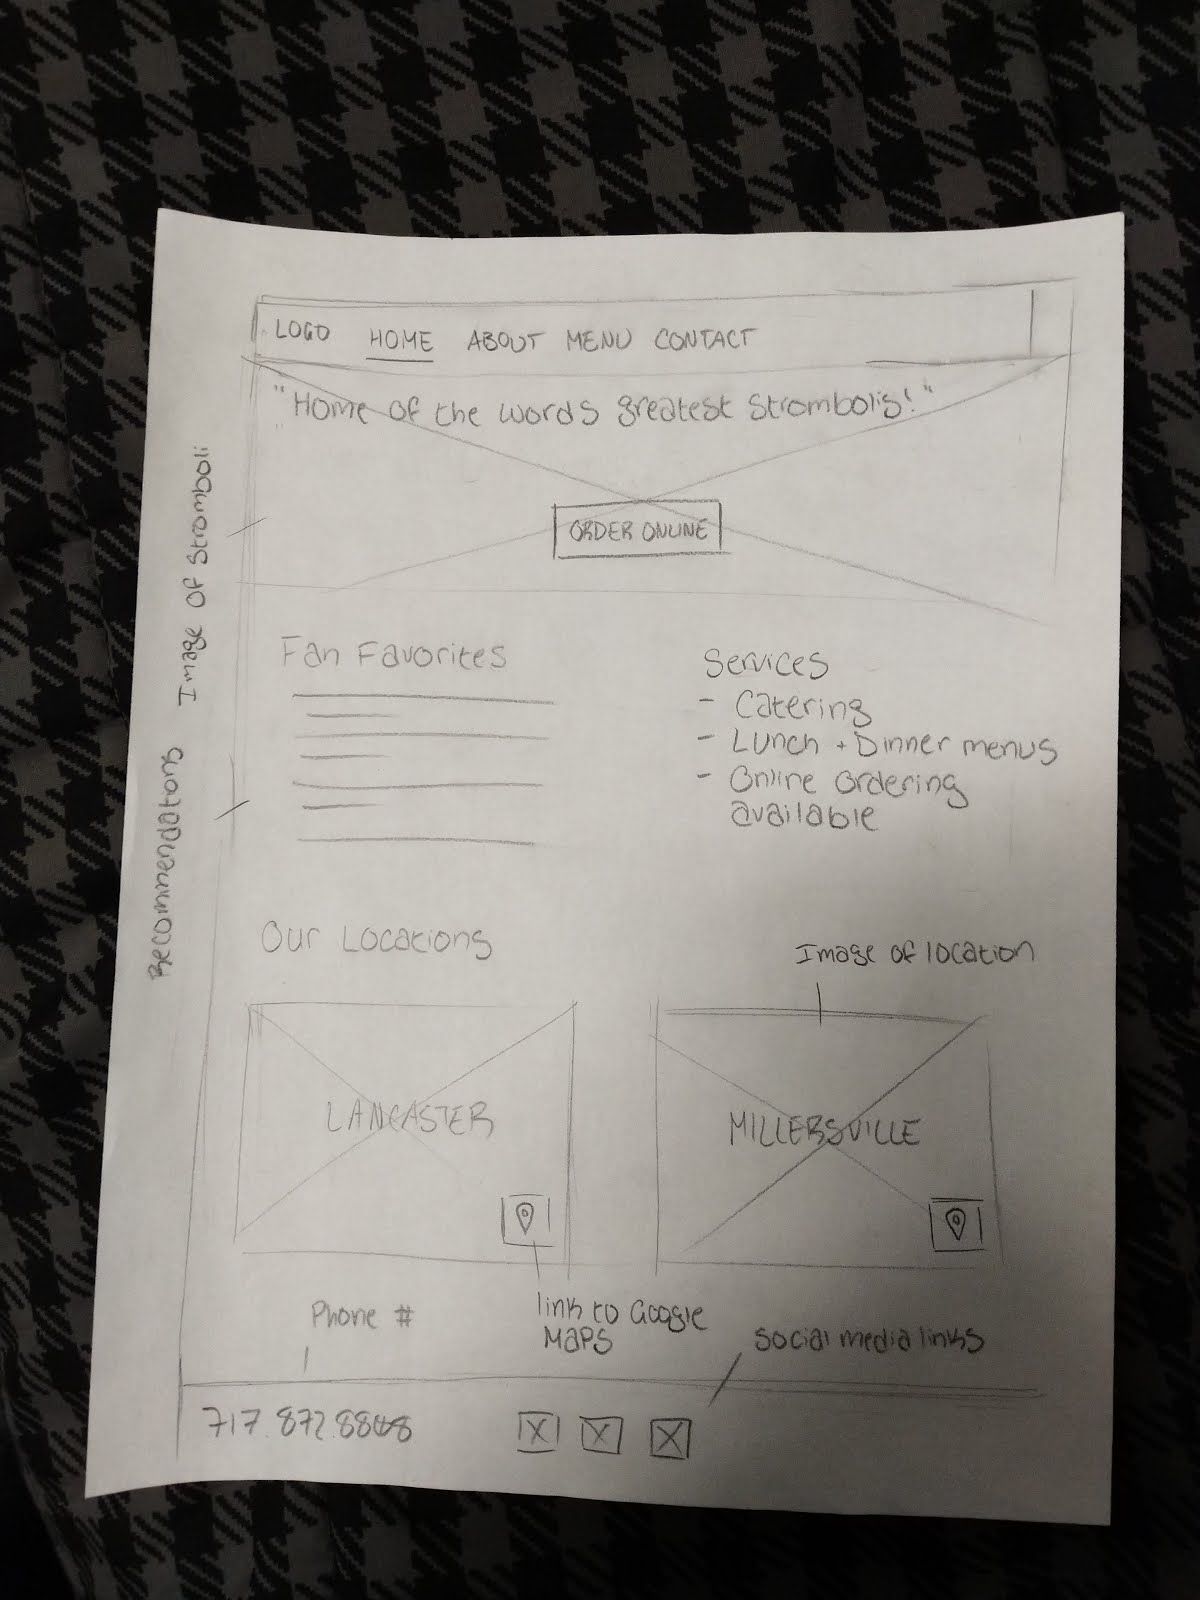 LOGO HOME ABOUT MENU CONTACT
"Home of the words greatest Strombolis!"
Image of Stromboli
ORDER ONLINE
Fan Favorites
Services
- Catering
- Lunch + Dinner menus
- Online ordering
available
Recommendations
Our Locations
Image of location
LANCASTER
MILLERSVILLE
Phone #
link to Google
Maps
Social media links
717.872.8848